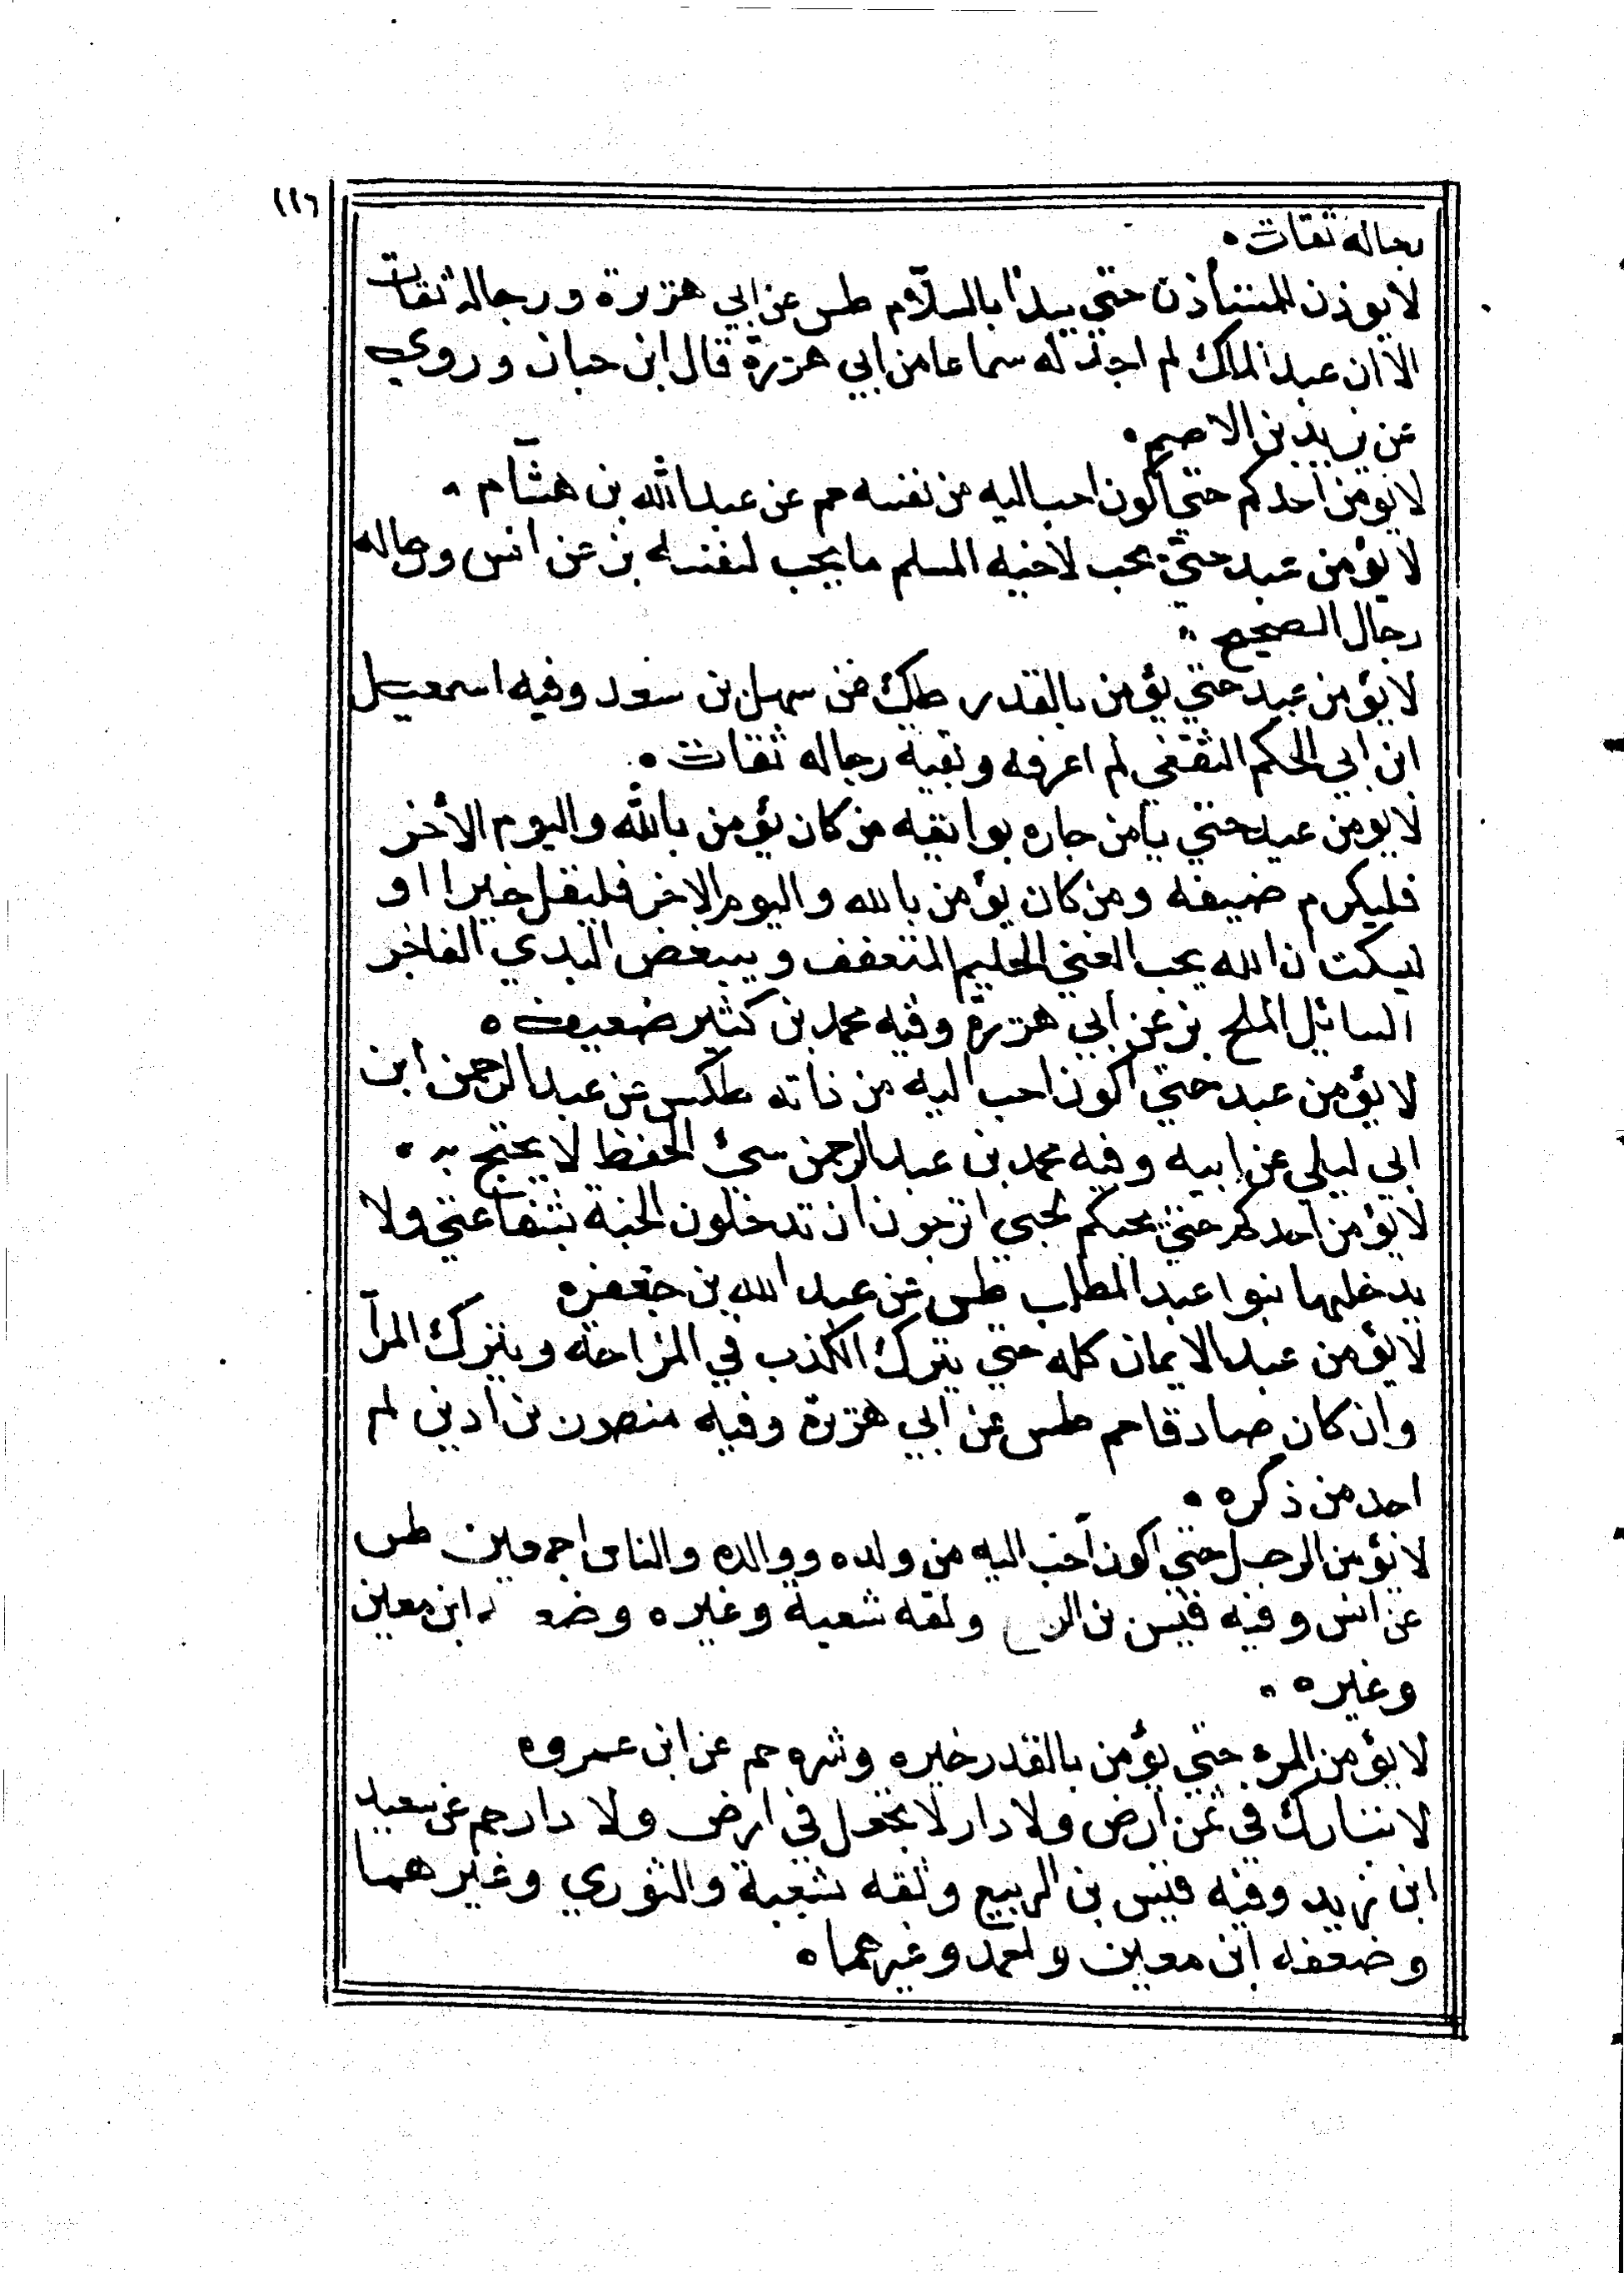 ١١٦
رجاله ثقات ه
لا يوذن للمستأذن حتي يبدأ بالسلام طس عن ابي هريرة ورجاله ثقات
الا ان عبد الملك لم اجد له سماعا من ابي هريرة قال ابن حبان وروي
عن يزيد بن الاصم ه
لا يؤمن احدكم حتي اكون احب اليه من نفسه حم عن عبد الله بن هشام ه
لا يؤمن عبد حتي يحب لاخيه المسلم ما يحب لنفسه بز عن انس ورجاله
رجال الصحيح ه
لا يؤمن عبد حتي يؤمن بالقدر طك عن سهل بن سعد وفيه اسمعيل
ابن ابي الحكم الثقفي لم اعرفه وبقية رجاله ثقات ه
لا يؤمن عبد حتي يامن جاره بوايقه من كان يؤمن بالله واليوم الأخر
فليكرم ضيفه ومن كان يؤمن بالله واليوم الاخر فليقل خيرا او
ليسكت ان الله يحب الغني الحليم المتعفف ويبغض البدي الفاخر
السائيل الملح بز عن ابي هريرة وفيه محمد بن كثير ضعيف ه
لا يؤمن عبد حتي اكون احب اليه من ذاته طكس عن عبد الرحمن ابن
ابي ليلي عن ابيه وفيه محمد بن عبد الرحمن سئ الحفظ لا يحتج به ه
لا يؤمن احدكم حتي يحبكم لحبي اترجون ان تدخلون الجنة بشفاعتي ولا
يدخلها بنوا عبد المطلب طس عن عبد الله بن جعفر ه
لا يؤمن عبد الايمان كله حتي يترك الكذب في المزاحة ويترك المرآ
وان كان صادقا حم طس عن ابي هريرة وفيه منصور بن ادين لم
احد من ذكره ه
لا يؤمن الرجل حتي اكون احب اليه من ولده ووالده والناس اجمعين طس
عن انس وفيه قيس بن وثقه شعبة وغيره ابن معين
وغيره ه
لا يؤمن المرء حتي يؤمن بالقدر خيره وشره حم عن ابن عمرو ه
لا يبارك في ثمن ارض ولا دار لا يجعل في ارض ولا دار حم عن سعيد
ابن زيد وفيه قيس بن الربيع وثقه شعبة والثوري وغيرهما
وضعفه ابن معين واحمد وغيرهما ه